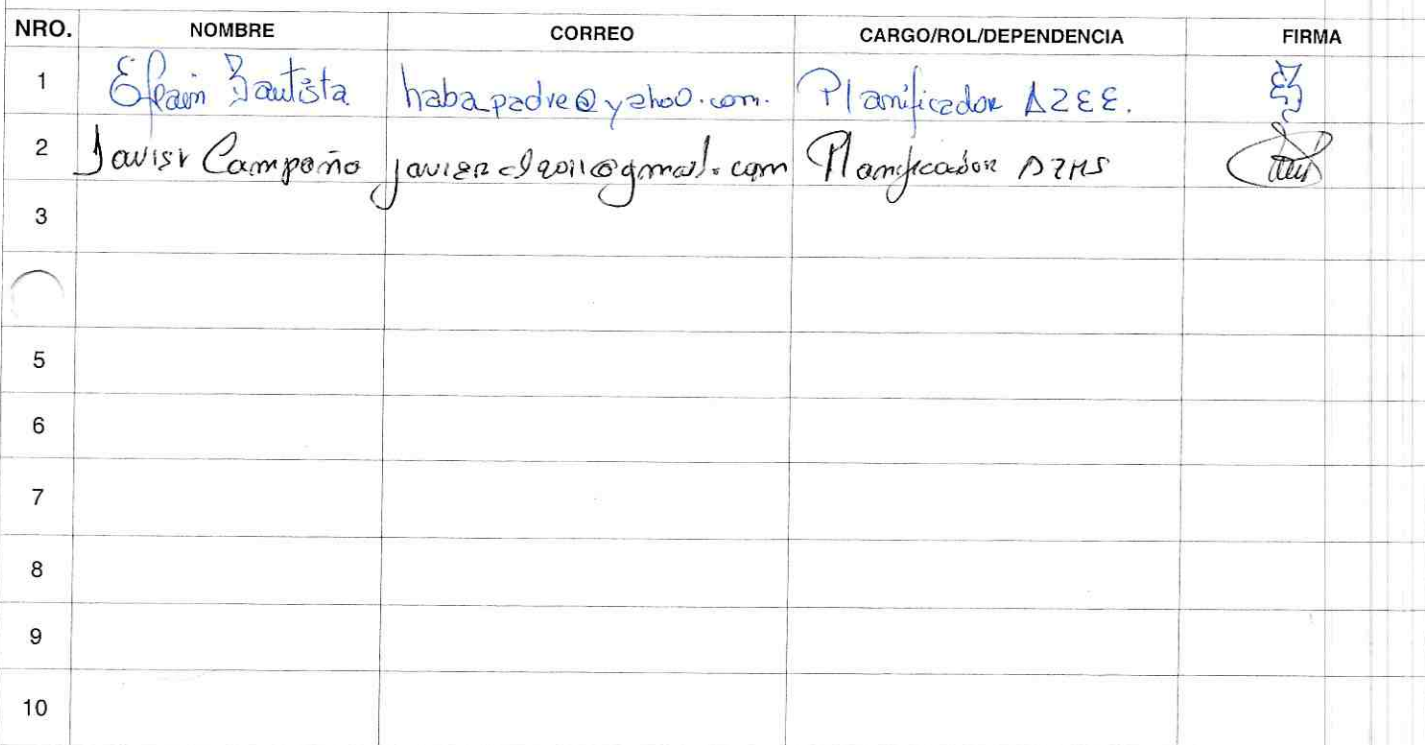 NRO. NOMBRE CORREO CARGO/ROL/DEPENDENCIA FIRMA
1 Efrain Bautista haba_padre@yahoo.com. Planificador AZEE.
2 Javier Campaña Planificador AZMS
3
5
6
7
8
9
10